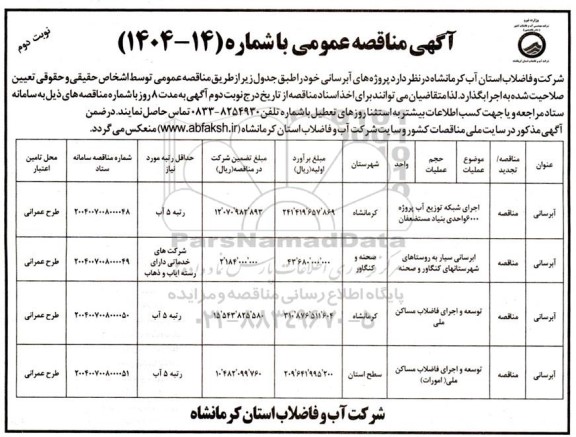 نوبت دوم
آگهی مناقصه عمومی با شماره (۱۴-۱۴۰۴)
شرکت آب و فاضلاب استان آب کرمانشاه در نظر دارد پروژه های آبرسانی خود را طبق جدول زیر از طریق مناقصه عمومی توسط اشخاص حقیقی و حقوقی تعیین
صلاحیت شده به اجرا بگذارد. لذا متقاضیان می توانند برای اخذ اسناد مناقصه از تاریخ درج نوبت دوم آگهی به مدت ۸ روز با شماره مناقصه های ذیل به سامانه
ستاد مراجعه و یا جهت کسب اطلاعات بیشتر به استثنا روزهای تعطیل با شماره تلفن ۸۲۵۴۹۳۰-۰۸۳۳ تماس حاصل نمایند. در ضمن
آگهی مذکور در سایت ملی مناقصات کشور و سایت شرکت آب و فاضلاب استان کرمانشاه (www.abfaksh.ir) منعکس می گردد.
عنوان مناقصه/تجدید موضوع عملیات حجم عملیات واحد شهرستان مبلغ برآورد اولیه(ریال) مبلغ تضمین شرکت در مناقصه(ریال) حداقل رتبه مورد نیاز شماره مناقصه سامانه ستاد محل تامین اعتبار
آبرسانی مناقصه اجرای شبکه توزیع آب پروژه ۶۰۰۰واحدی بنیاد مستضعفان کرمانشاه ۲۴۱٬۴۱۹٬۶۵۷٬۸۶۹ ۱۲٬۰۷۰٬۹۸۲٬۸۹۳ رتبه ۵ آب ۲۰۰۴۰۰۷۰۰۸۰۰۰۰۴۸ طرح عمرانی
آبرسانی مناقصه ابرسانی سیار به روستاهای شهرستانهای کنگاور و صحنه صحنه و کنگاور ۴۳٬۶۸۰٬۰۰۰٬۰۰۰ ۲٬۱۸۴٬۰۰۰٬۰۰۰ شرکت های خدماتی دارای رسته ایاب و ذهاب ۲۰۰۴۰۰۷۰۰۸۰۰۰۰۴۹ طرح عمرانی
آبرسانی مناقصه توسعه و اجرای فاضلاب مساکن ملی کرمانشاه ۳۱۰٬۸۷۶٬۵۱۱٬۶۰۴ ۱۵٬۵۴۳٬۸۲۵٬۵۸۰ رتبه ۵ آب ۲۰۰۴۰۰۷۰۰۸۰۰۰۰۵۰ طرح عمرانی
آبرسانی مناقصه توسعه و اجرای فاضلاب مساکن ملی( امورات) سطح استان ۲۰۹٬۶۴۱٬۹۹۵٬۲۰۰ ۱۰٬۴۸۲٬۰۹۹٬۷۶۰ رتبه ۵ آب ۲۰۰۴۰۰۷۰۰۸۰۰۰۰۵۱ طرح عمرانی
ParsNamadData
پایگاه اطلاع رسانی مناقصه و مزایده
۰۲۱-۸۸۳۴۹۶۷۰-۵
شرکت آب و فاضلاب استان کرمانشاه